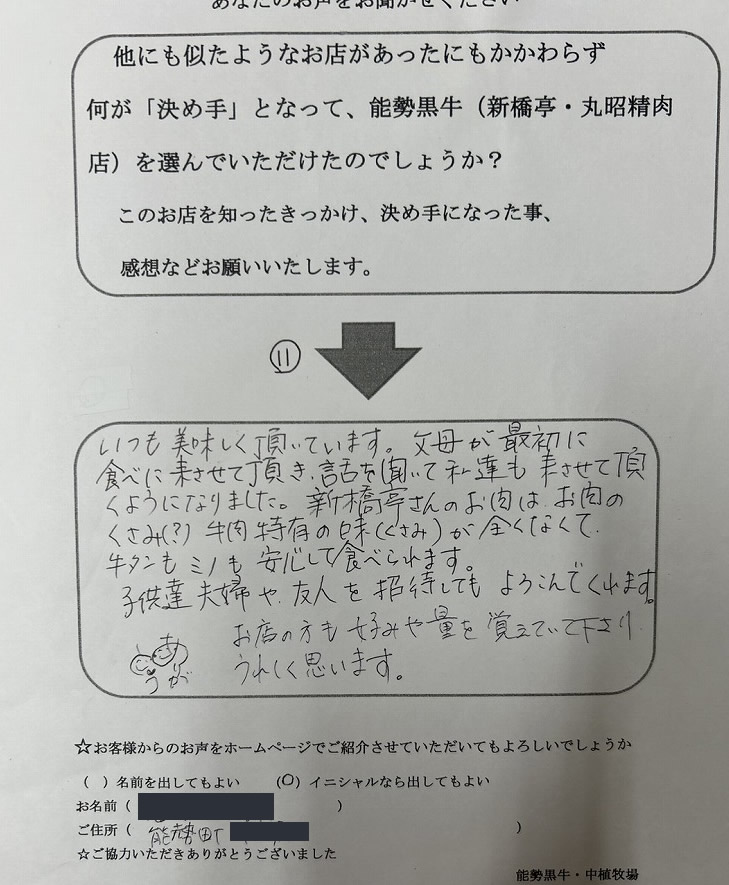 あなたのお声をお聞かせください
他にも似たようなお店があったにもかかわらず
何が「決め手」となって、能勢黒牛（新橋亭・丸昭精肉
店）を選んでいただけたのでしょうか？
このお店を知ったきっかけ、決め手になった事、
感想などお願いいたします。
⑪
いつも美味しく頂いています。父母が最初に
食べに来させて頂き、話を聞いて私達も来させて頂
くようになりました。新橋亭さんのお肉は、お肉の
くさみ(?) 牛肉特有の味(くさみ)が全くなくて、
牛タンもミノも安心して食べられます。
子供達夫婦や、友人を招待してもよろこんでくれます。
お店の方も好みや量を覚えていて下さり
うれしく思います。
☆お客様からのお声をホームページでご紹介させていただいてもよろしいでしょうか
（ ）名前を出してもよい （○）イニシャルなら出してもよい
お名前（ ）
ご住所（ 能勢町 ）
☆ご協力いただきありがとうございました
能勢黒牛・中植牧場